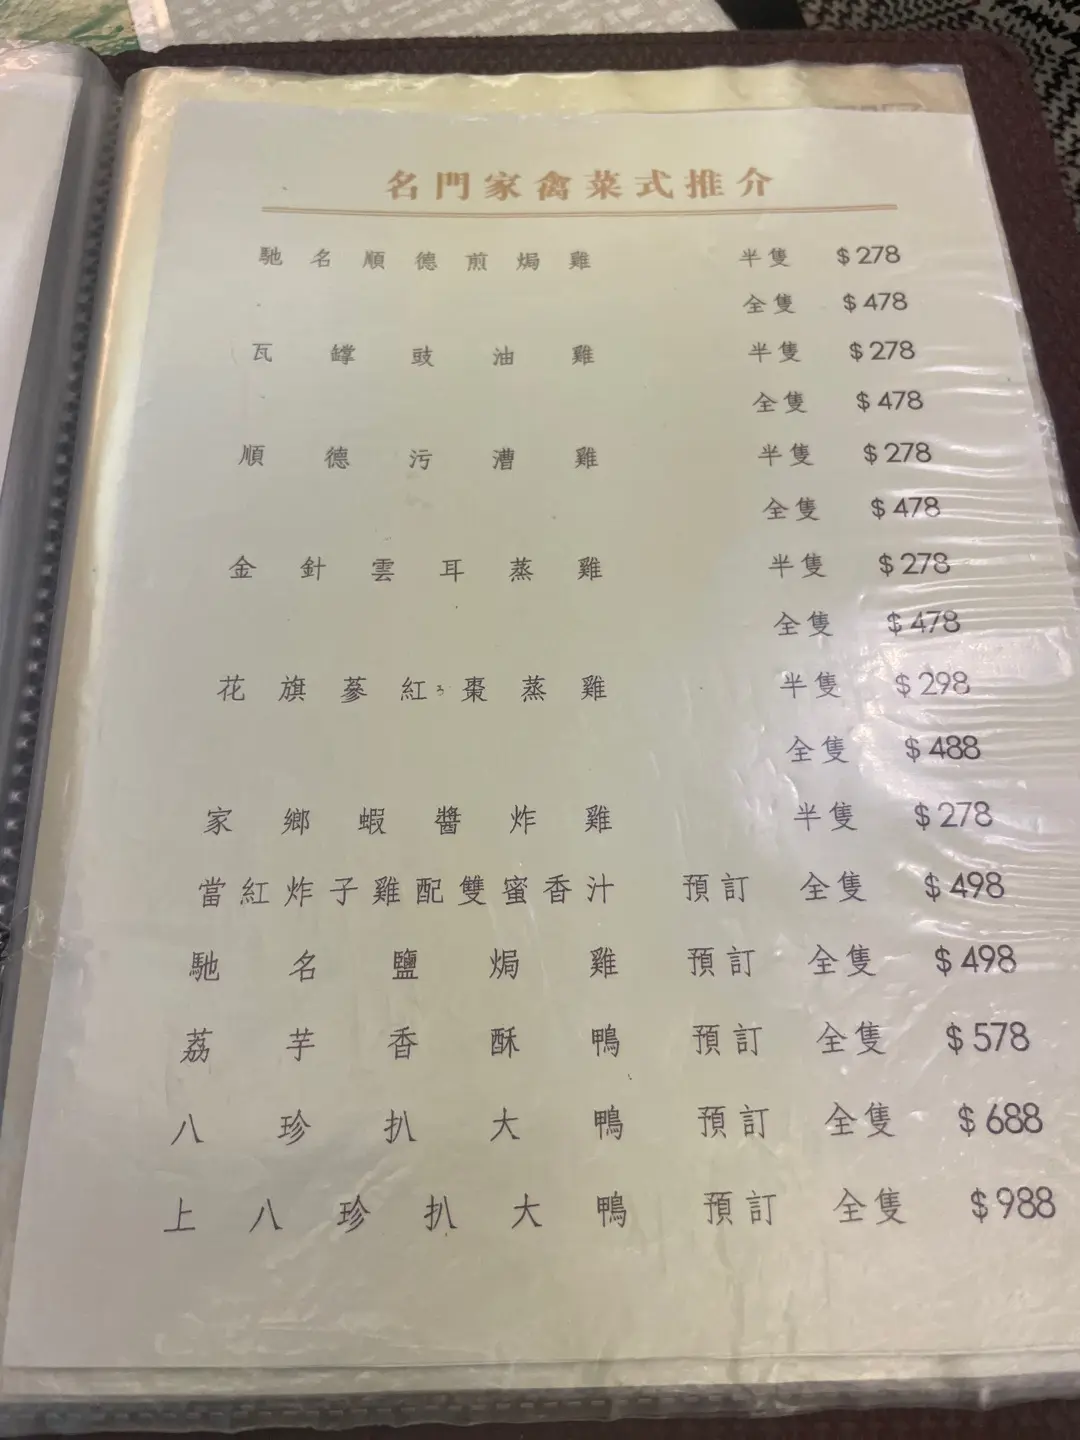 名門家禽菜式推介
馳名順德煎焗雞 半隻 $278
全隻 $478
瓦罉豉油雞 半隻 $278
全隻 $478
順德污漕雞 半隻 $278
全隻 $478
金針雲耳蒸雞 半隻 $278
全隻 $478
花旗蔘紅棗蒸雞 半隻 $298
全隻 $488
家鄉蝦醬炸雞 半隻 $278
當紅炸子雞配雙蜜香汁 預訂 全隻 $498
馳名鹽焗雞 預訂 全隻 $498
荔芋香酥鴨 預訂 全隻 $578
八珍扒大鴨 預訂 全隻 $688
上八珍扒大鴨 預訂 全隻 $988